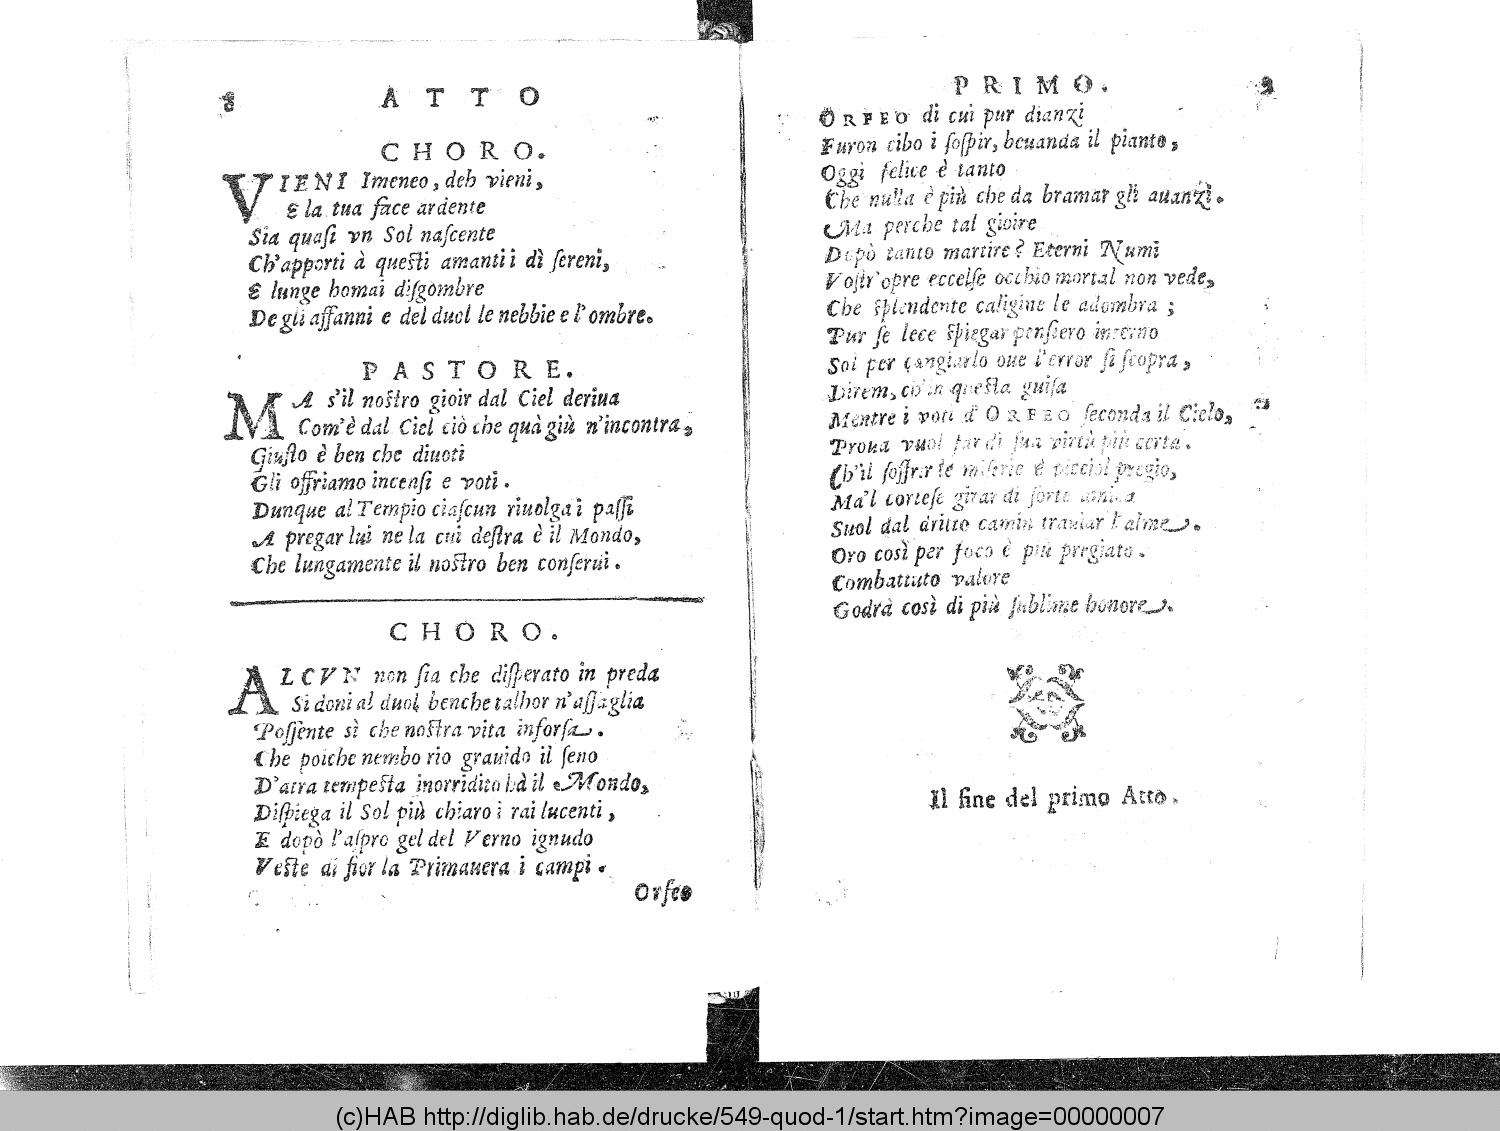 8 ATTO
CHORO.
VIENI Imeneo, deh vieni,
E la tua face ardente
Sia quasi vn Sol nascente
Ch'apporti à questi amanti i dì sereni,
E lunge homai disgombre
De gli affanni e del duol le nebbie e l'ombre.
PASTORE.
MA s'il nostro gioir dal Ciel deriua
Com'è dal Ciel ciò che quà giù n'incontra,
Giusto è ben che diuoti
Gli offriamo incensi e voti.
Dunque al Tempio ciascun riuolga i passi
A pregar lui ne la cui destra è il Mondo,
Che lungamente il nostro ben conserui.
CHORO.
ALCVN non sia che disperato in preda
Si doni al duol benche talhor n'assaglia
Possente sì che nostra vita inforsa.
Che poiche nembo rio grauido il seno
D'atra tempesta inorridito hà il Mondo,
Dispiega il Sol più chiaro i rai lucenti,
E dopò l'aspro gel del Verno ignudo
Veste di fior la Primauera i campi.
Orfeo
PRIMO. 9
ORFEO di cui pur dianzi
Furon cibo i sospir, beuanda il pianto,
Oggi felice è tanto
Che nulla è più che da bramar gli auanzi.
Ma perche tal gioire
Dopò tanto martire? Eterni Numi
Vostr'opre eccelse occhio mortal non vede,
Che splendente caligine le adombra;
Pur se lece spiegar pensiero interno
Sol per cangiarlo oue l'error si scopra,
Direm, ch'in questa guisa
Mentre i voti d'ORFEO seconda il Cielo,
Proua vuol far di sua virtù più certa.
Ch'il soffrir le miserie è picciol pregio,
Ma'l cortese girar di sorte amica
Suol dal dritto camin trauiar l'alme.
Oro così per foco è più pregiato.
Combattuto valore
Godrà così di più sublime honore.
Il fine del primo Atto.
(c)HAB http://diglib.hab.de/drucke/549-quod-1/start.htm?image=00000007